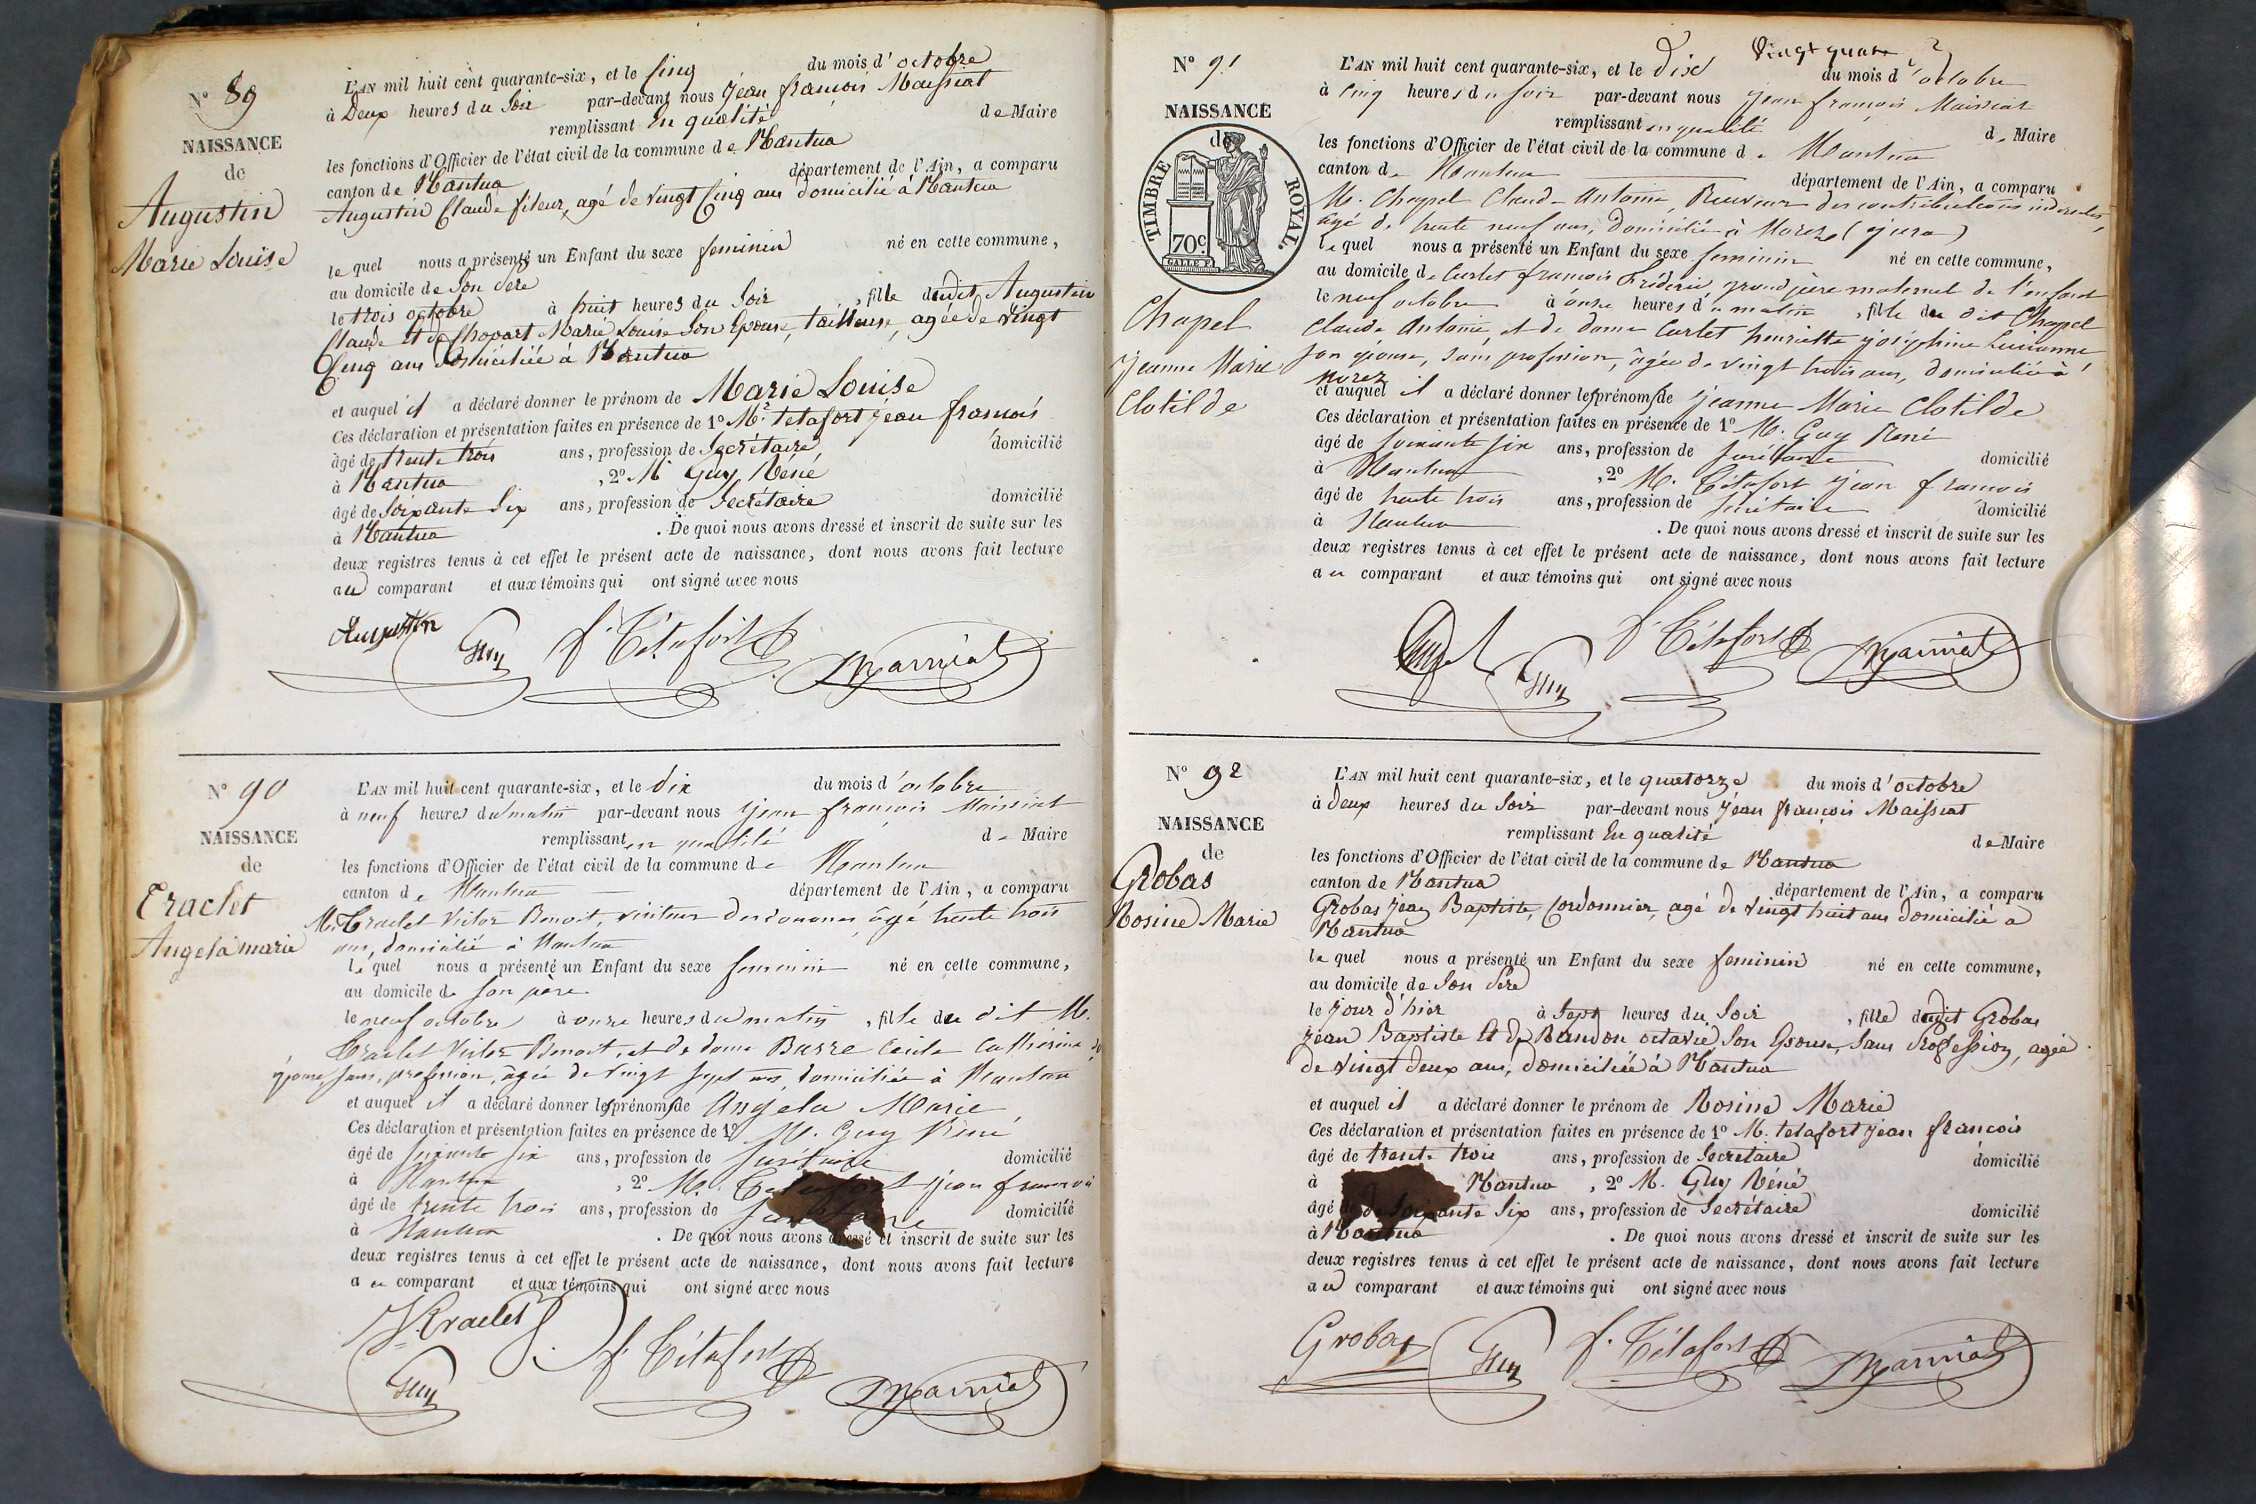 N° 89
NAISSANCE
de
Augustin
Marie Louise
L'AN mil huit cent quarante-six, et le cinq du mois d'octobre
à Deux heures du Soir par-devant nous jean françois Maissiat
remplissant En qualité de Maire
les fonctions d'Officier de l'état civil de la commune de Nantua
canton de Nantua département de l'Ain, a comparu
Augustin Claude fileur, agé de vingt Cinq ans domicilié à Nantua
lequel nous a présenté un Enfant du sexe feminin né en cette commune,
au domicile de Son Père
le trois octobre à huit heures du Soir, fille dudit Augustin
Claude Et de Chopart Marie Louise Son Epouse, tailleuse, agée de Vingt
Cinq ans Domiciliée à Nantua
et auquel il a déclaré donner le prénom de Marie Louise
Ces déclaration et présentation faites en présence de 1° Mr. tetafort jean francois
âgé de trente trois ans, profession de Secrétaire domicilié
à Nantua, 2° M. Guy Réné
âgé de Soixante Six ans, profession de Secrétaire domicilié
à Nantua. De quoi nous avons dressé et inscrit de suite sur les
deux registres tenus à cet effet le présent acte de naissance, dont nous avons fait lecture
au comparant et aux témoins qui ont signé avec nous
Augustin Guy f. Tétafort Maissiat
N° 90
NAISSANCE
de
Traclet
Angela marie
L'AN mil huit cent quarante-six, et le dix du mois d'octobre
à neuf heures du matin par-devant nous jean françois Maissiat
remplissant en qualité de Maire
les fonctions d'Officier de l'état civil de la commune de Nantua
canton de Nantua département de l'Ain, a comparu
M. Traclet Victor Benoit, visiteur des douanes, âgé trente trois
ans, domicilié à Nantua
lequel nous a présenté un Enfant du sexe feminin né en cette commune,
au domicile de son père
le neuf octobre à onze heures du matin, fille du dit M.
Traclet Victor Benoit, et de dame Barre Cecile Catherine
épouse sans profession, âgée de vingt sept ans, domiciliée à Nantua
et auquel il a déclaré donner les prénoms de Angela Marie
Ces déclaration et présentation faites en présence de 1° M. Guy Réné
âgé de soixante six ans, profession de secrétaire domicilié
à Nantua, 2° M. Tetafort jean francois
âgé de trente trois ans, profession de secrétaire domicilié
à Nantua. De quoi nous avons dressé et inscrit de suite sur les
deux registres tenus à cet effet le présent acte de naissance, dont nous avons fait lecture
au comparant et aux témoins qui ont signé avec nous
V. Traclet
Guy f. Tétafort Maissiat
N° 91
NAISSANCE
de
TIMBRE ROYAL
70c
Chapel
jeanne Marie
Clotilde
L'AN mil huit cent quarante-six, et le dix du mois d'octobre
à cinq heures du soir par-devant nous jean françois Maissiat
remplissant en qualité de Maire
les fonctions d'Officier de l'état civil de la commune de Nantua
canton de Nantua département de l'Ain, a comparu
M. Chapel Claude Antoine, Receveur des contributions indirectes,
âgé de trente neuf ans, domicilié à Morez (jura)
lequel nous a présenté un Enfant du sexe feminin né en cette commune,
au domicile de Carlet françois Fréderic grand père maternel de l'enfant
le neuf octobre à onze heures du matin, fille du dit Chapel
Claude Antoine, et de dame Carlet henriette joséphine Lucienne
son épouse, sans profession, âgée de vingt trois ans, domiciliée à
Morez
et auquel il a déclaré donner les prénoms de jeanne Marie Clotilde
Ces déclaration et présentation faites en présence de 1° M. Guy René
âgé de soixante six ans, profession de secrétaire domicilié
à Nantua, 2° M. Tetafort jean francois
âgé de trente trois ans, profession de secrétaire domicilié
à Nantua. De quoi nous avons dressé et inscrit de suite sur les
deux registres tenus à cet effet le présent acte de naissance, dont nous avons fait lecture
au comparant et aux témoins qui ont signé avec nous
Chapel Guy f. Tétafort Maissiat
N° 92
NAISSANCE
de
Grobas
Rosine Marie
L'AN mil huit cent quarante-six, et le quatorze du mois d'octobre
à Deux heures du Soir par-devant nous jean françois Maissiat
remplissant En qualité de Maire
les fonctions d'Officier de l'état civil de la commune de Nantua
canton de Nantua département de l'Ain, a comparu
Grobas jean Baptiste, Cordonnier, agé de vingt huit ans domicilié a
Nantua
lequel nous a présenté un Enfant du sexe feminin né en cette commune,
au domicile de Son Père
le jour d'hier à Sept heures du Soir, fille dudit Grobas
jean Baptiste Et de Randon octavie Son Epouse, Sans Profession, agée
de Vingt deux ans, domiciliée à Nantua
et auquel il a déclaré donner le prénom de Rosine Marie
Ces déclaration et présentation faites en présence de 1° M. tetafort jean francois
âgé de trente trois ans, profession de Secretaire domicilié
à Nantua, 2° M. Guy Réné
âgé de Soixante Six ans, profession de Secrétaire domicilié
à Nantua. De quoi nous avons dressé et inscrit de suite sur les
deux registres tenus à cet effet le présent acte de naissance, dont nous avons fait lecture
au comparant et aux témoins qui ont signé avec nous
Grobas Guy f. Tétafort Maissiat